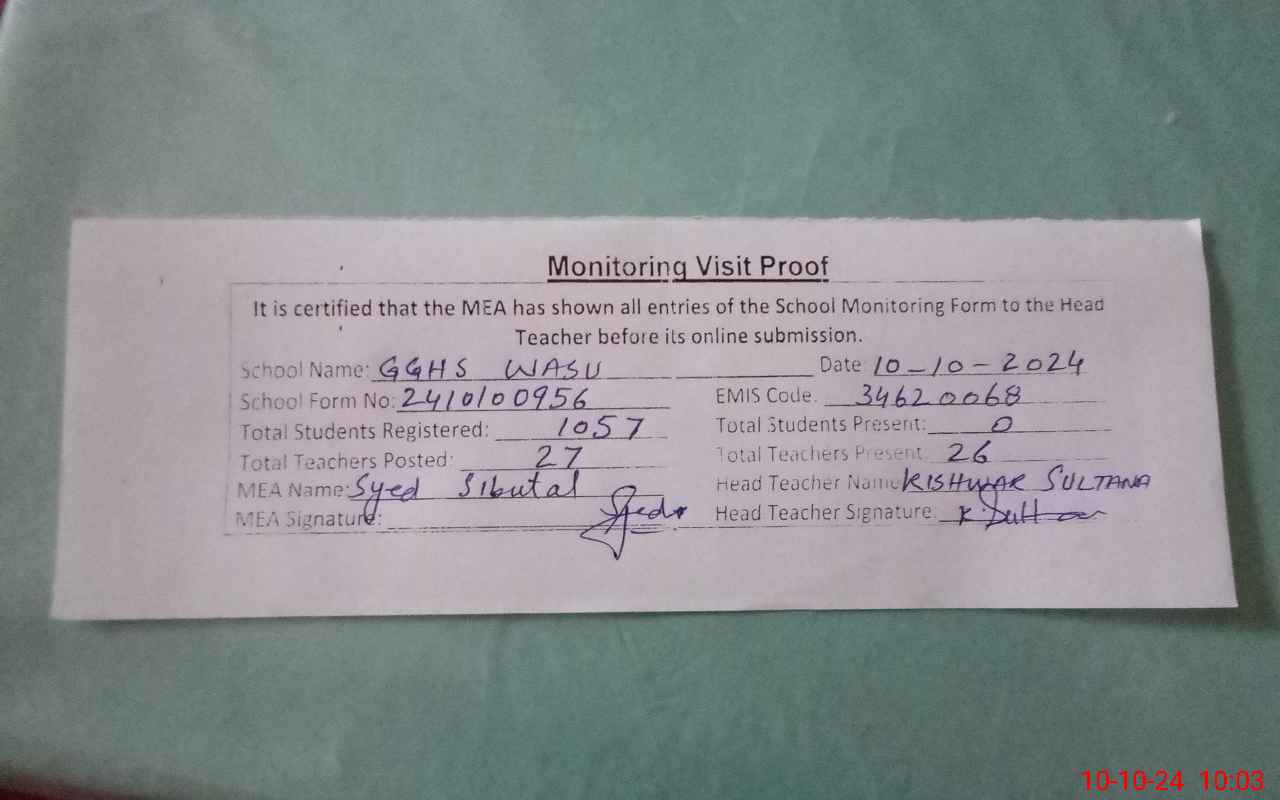 Monitoring Visit Proof
It is certified that the MEA has shown all entries of the School Monitoring Form to the Head
Teacher before its online submission.
School Name: GGHS WASU Date: 10-10-2024
School Form No: 2410100956 EMIS Code. 34620068
Total Students Registered: 1057 Total Students Present: 0
Total Teachers Posted: 27 Total Teachers Present: 26
MEA Name: Syed Sibutal Head Teacher Name KISHWAR SULTANA
MEA Signature: Syed Head Teacher Signature.
10-10-24 10:03